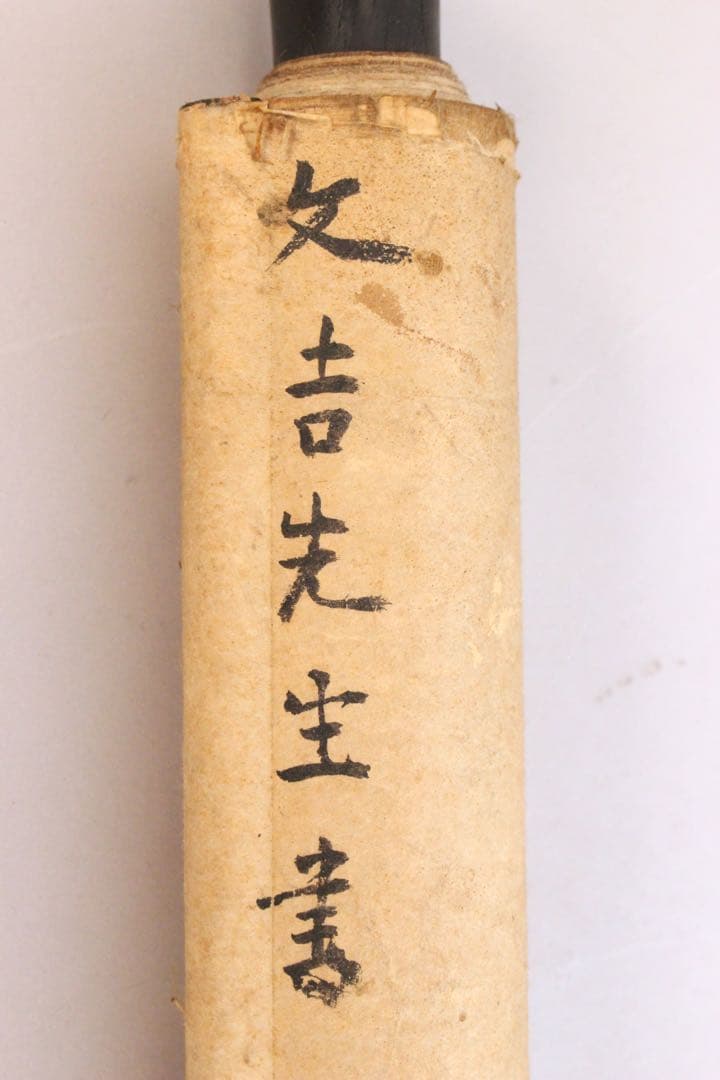 文吉先生書